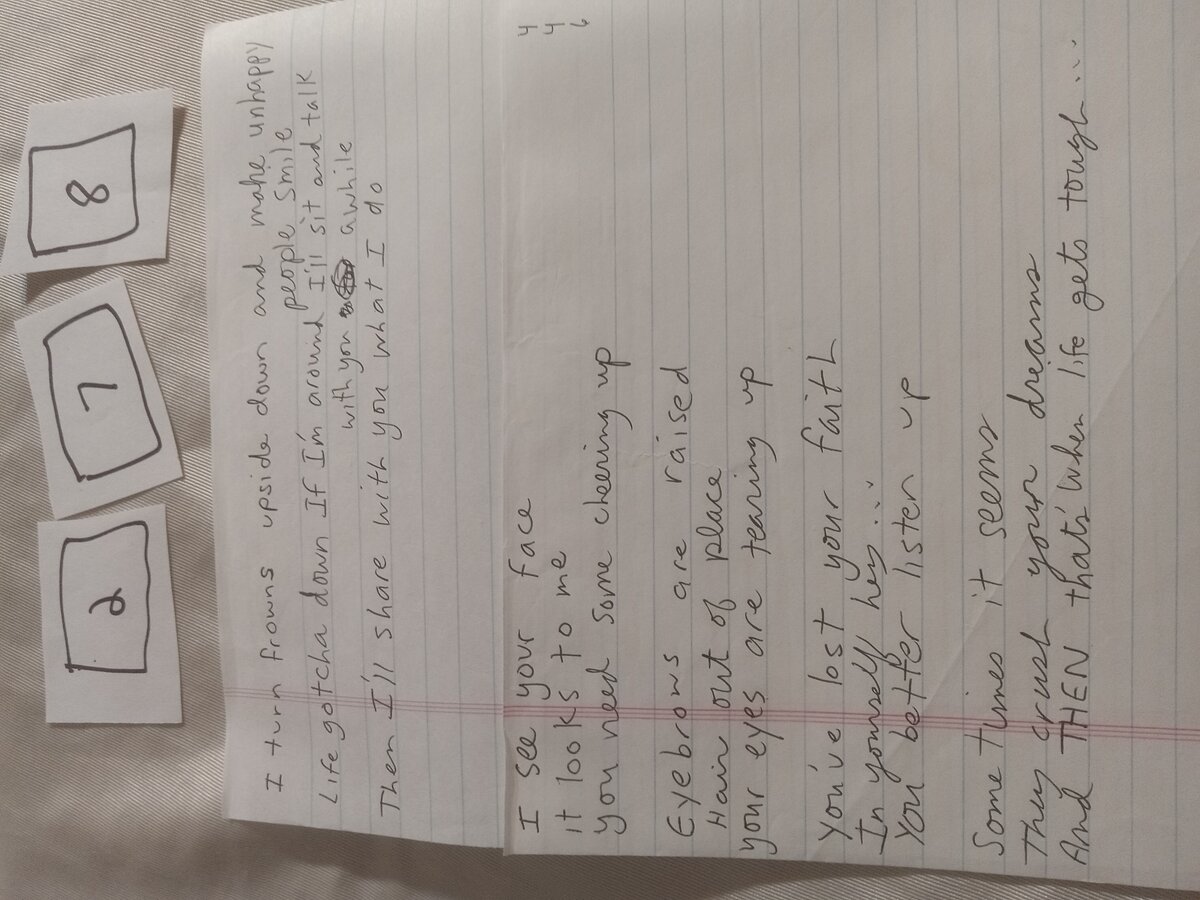 2 7 8
I turn frowns upside down and make unhappy
people smile
Life gotcha down If I'm around I'll sit and talk
with you awhile
Then I'll share with you what I do
4
4
6
I see your face
it looks to me
you need some cheering up
Eyebrows are raised
Hair out of place
your eyes are tearing up
You've lost your faith
In yourself hey...
You better listen up
Some times it seems
They crush your dreams
And THEN that's when life gets tough...